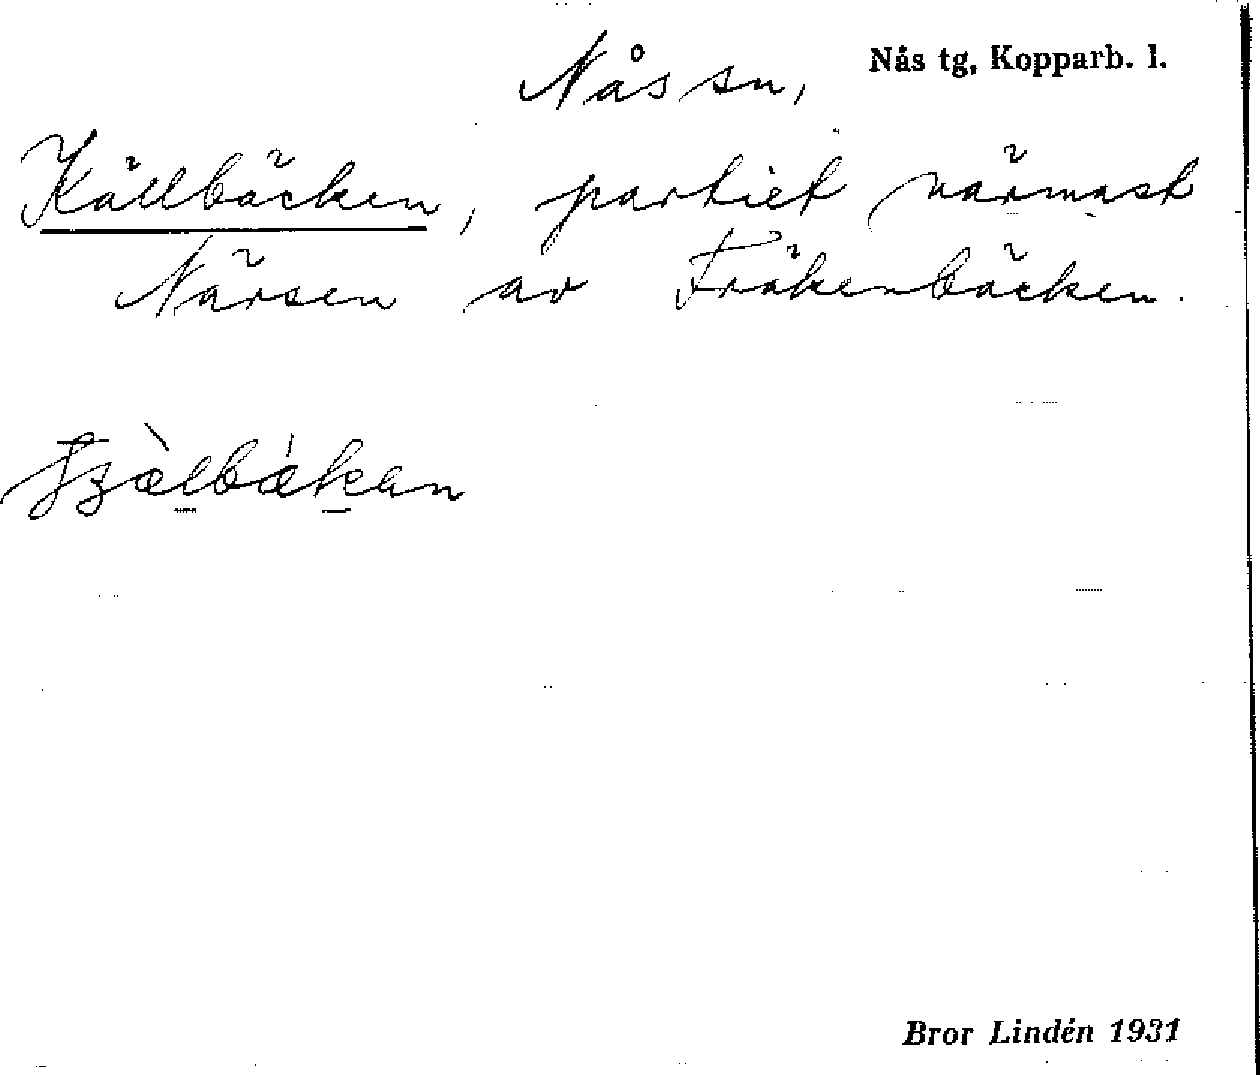 Nås tg, Kopparb. l.
Nås sn,
Källbäcken, partiet närmast
Närsen av Fräkenbäcken.
Bror Lindén 1931